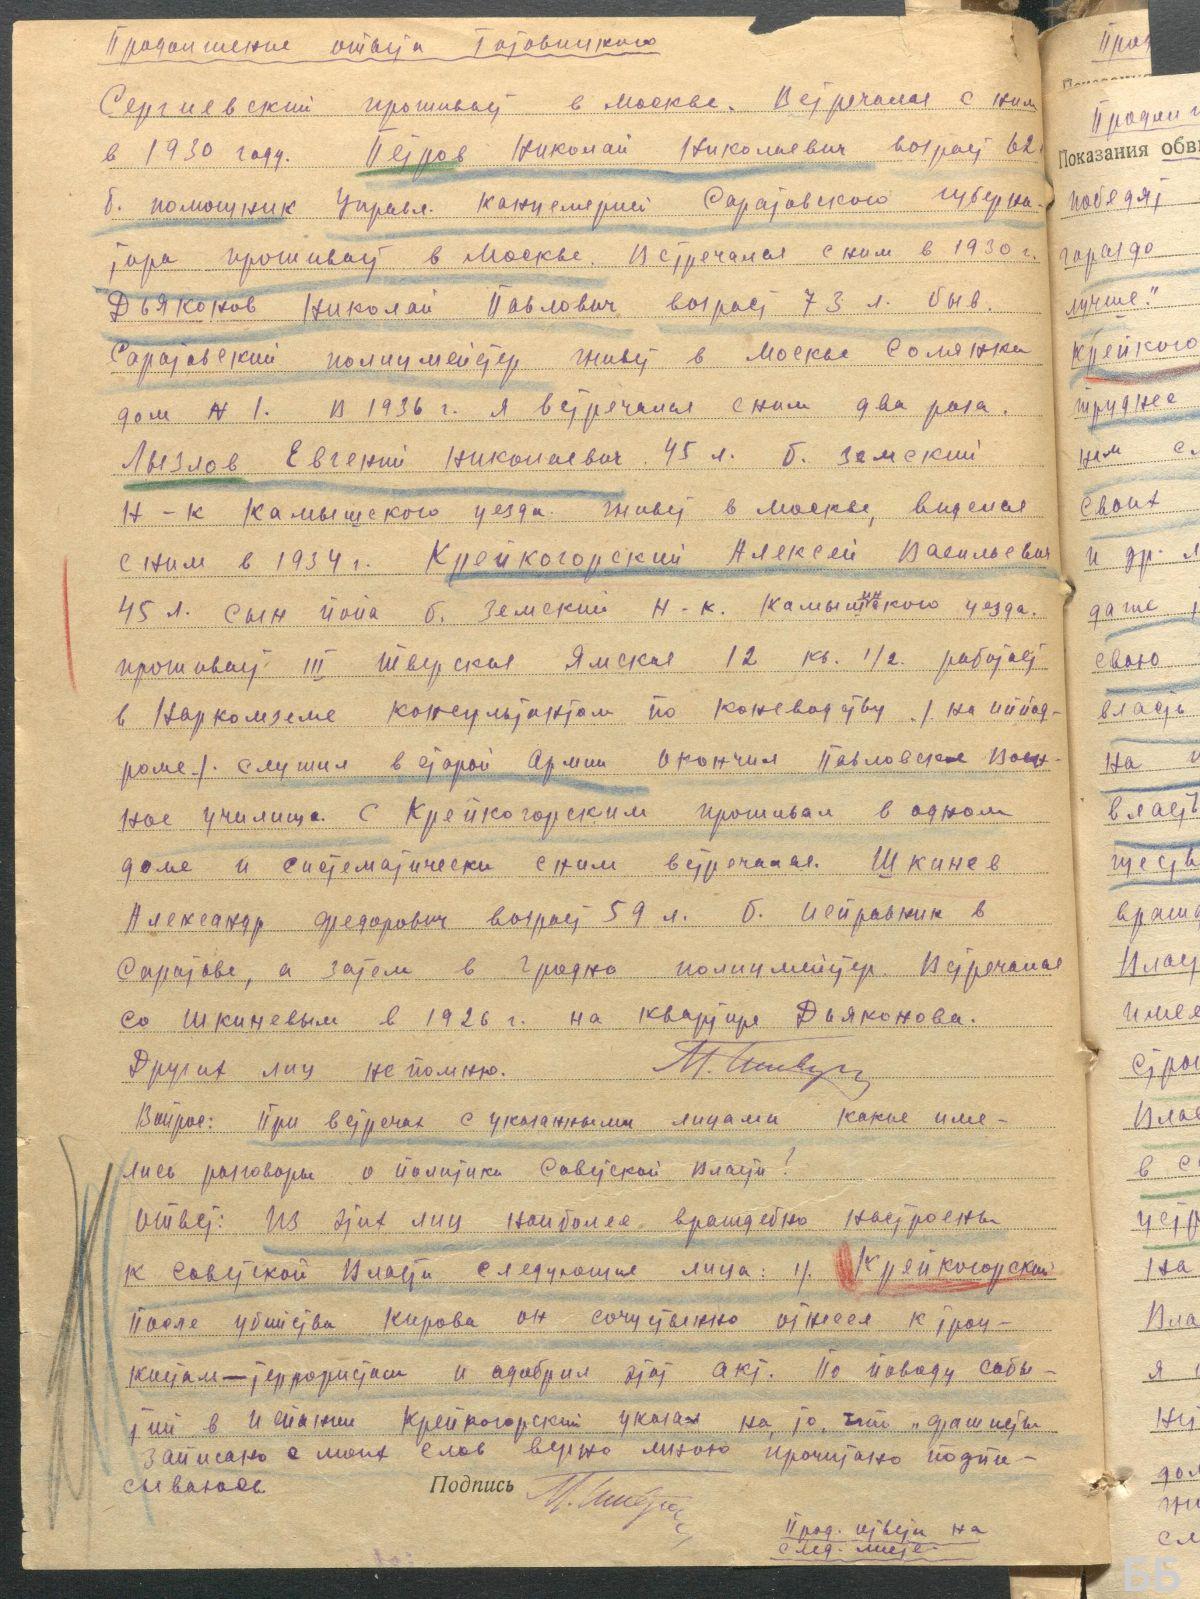 Продолжение ответа
Сергиевский проживает в Москве. Встречался с ним
в 1930 году. Петров Николай Николаевич возраст 62
б. помощник Управл. канцелярией Саратовского губерна-
тора проживает в Москве. Встречался с ним в 1930 г.
Дьяконов Николай Павлович возраст 73 л. быв.
Саратовский полицмейстер живет в Москве Солянка
дом N 1. В 1936 г. я встречался с ним два раза.
Лызлов Евгений Николаевич 45 л. б. Земский
Н-к Камышского уезда. живет в Москве, виделся
с ним в 1934 г. Крейкогорский Алексей Васильевич
45 л. сын попа б. Земский Н-к. Камышинского уезда.
проживает III Тверская Ямская 12 кв. 1/2. работает
в Наркомземе консультантом по коневодству /. на иппод-
роме /. служил в старой Армии окончил Павловское Воен-
ное училище. С Крейкогорским проживал в одном
доме и систематически с ним встречался. Шкинев
Александр Федорович возраст 59 л. б. исправник в
Саратове, а затем в Гродно полицмейстер. Встречался
со Шкиневым в 1926 г. на квартире Дьяконова.
Других лиц не помню.
Вопрос: При встречах с указанными лицами какие име-
лись разговоры о политике Советской Власти?
Ответ: Из этих лиц наиболее враждебно настроены
к Советской Власти следующие лица: 1/. Крейкогорский
После убийства Кирова он сочувственно отнесся к троц-
кистам-террористам и одобрил этот акт. По поводу собы-
тий в Испании Крейкогорский указал на то, что „фашисты
Записано с моих слов верно мною прочитано подпи-
сываюсь
Подпись
Прод. ответа на
след. листе.
Показания
Продолж
Показания обви
победят
гораздо
лучше."
Крейкого
труднее
ним
своих
и др.
даже
свою
власть
на
власть
ществ
вражд
Влас
имее
стро
Влас
в С
устр
на
Вла
я
ББ